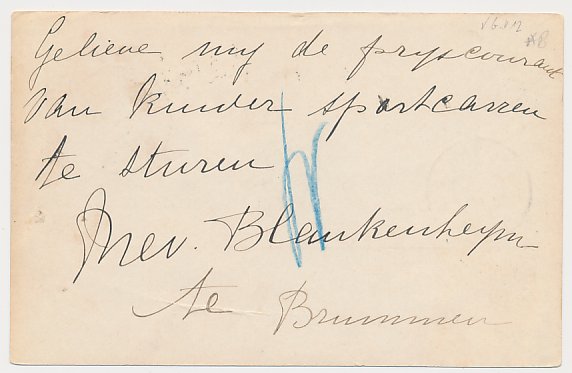 Gelieve my de pryscourant
van kinder sportcarren
te sturen
Mev. Blankenheym
te Brummen